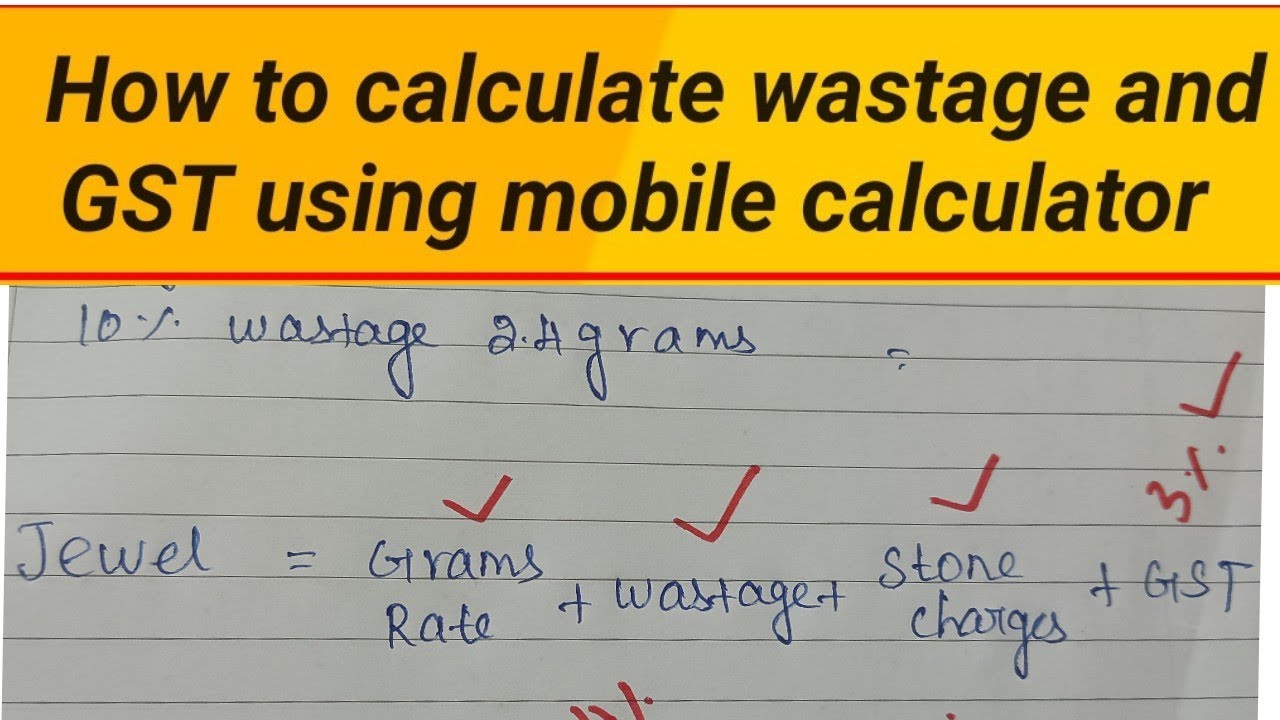 How to calculate wastage and
GST using mobile calculator
10% wastage 2.4 grams =
3%
Jewel = Grams Rate + wastage + Stone charges + GST